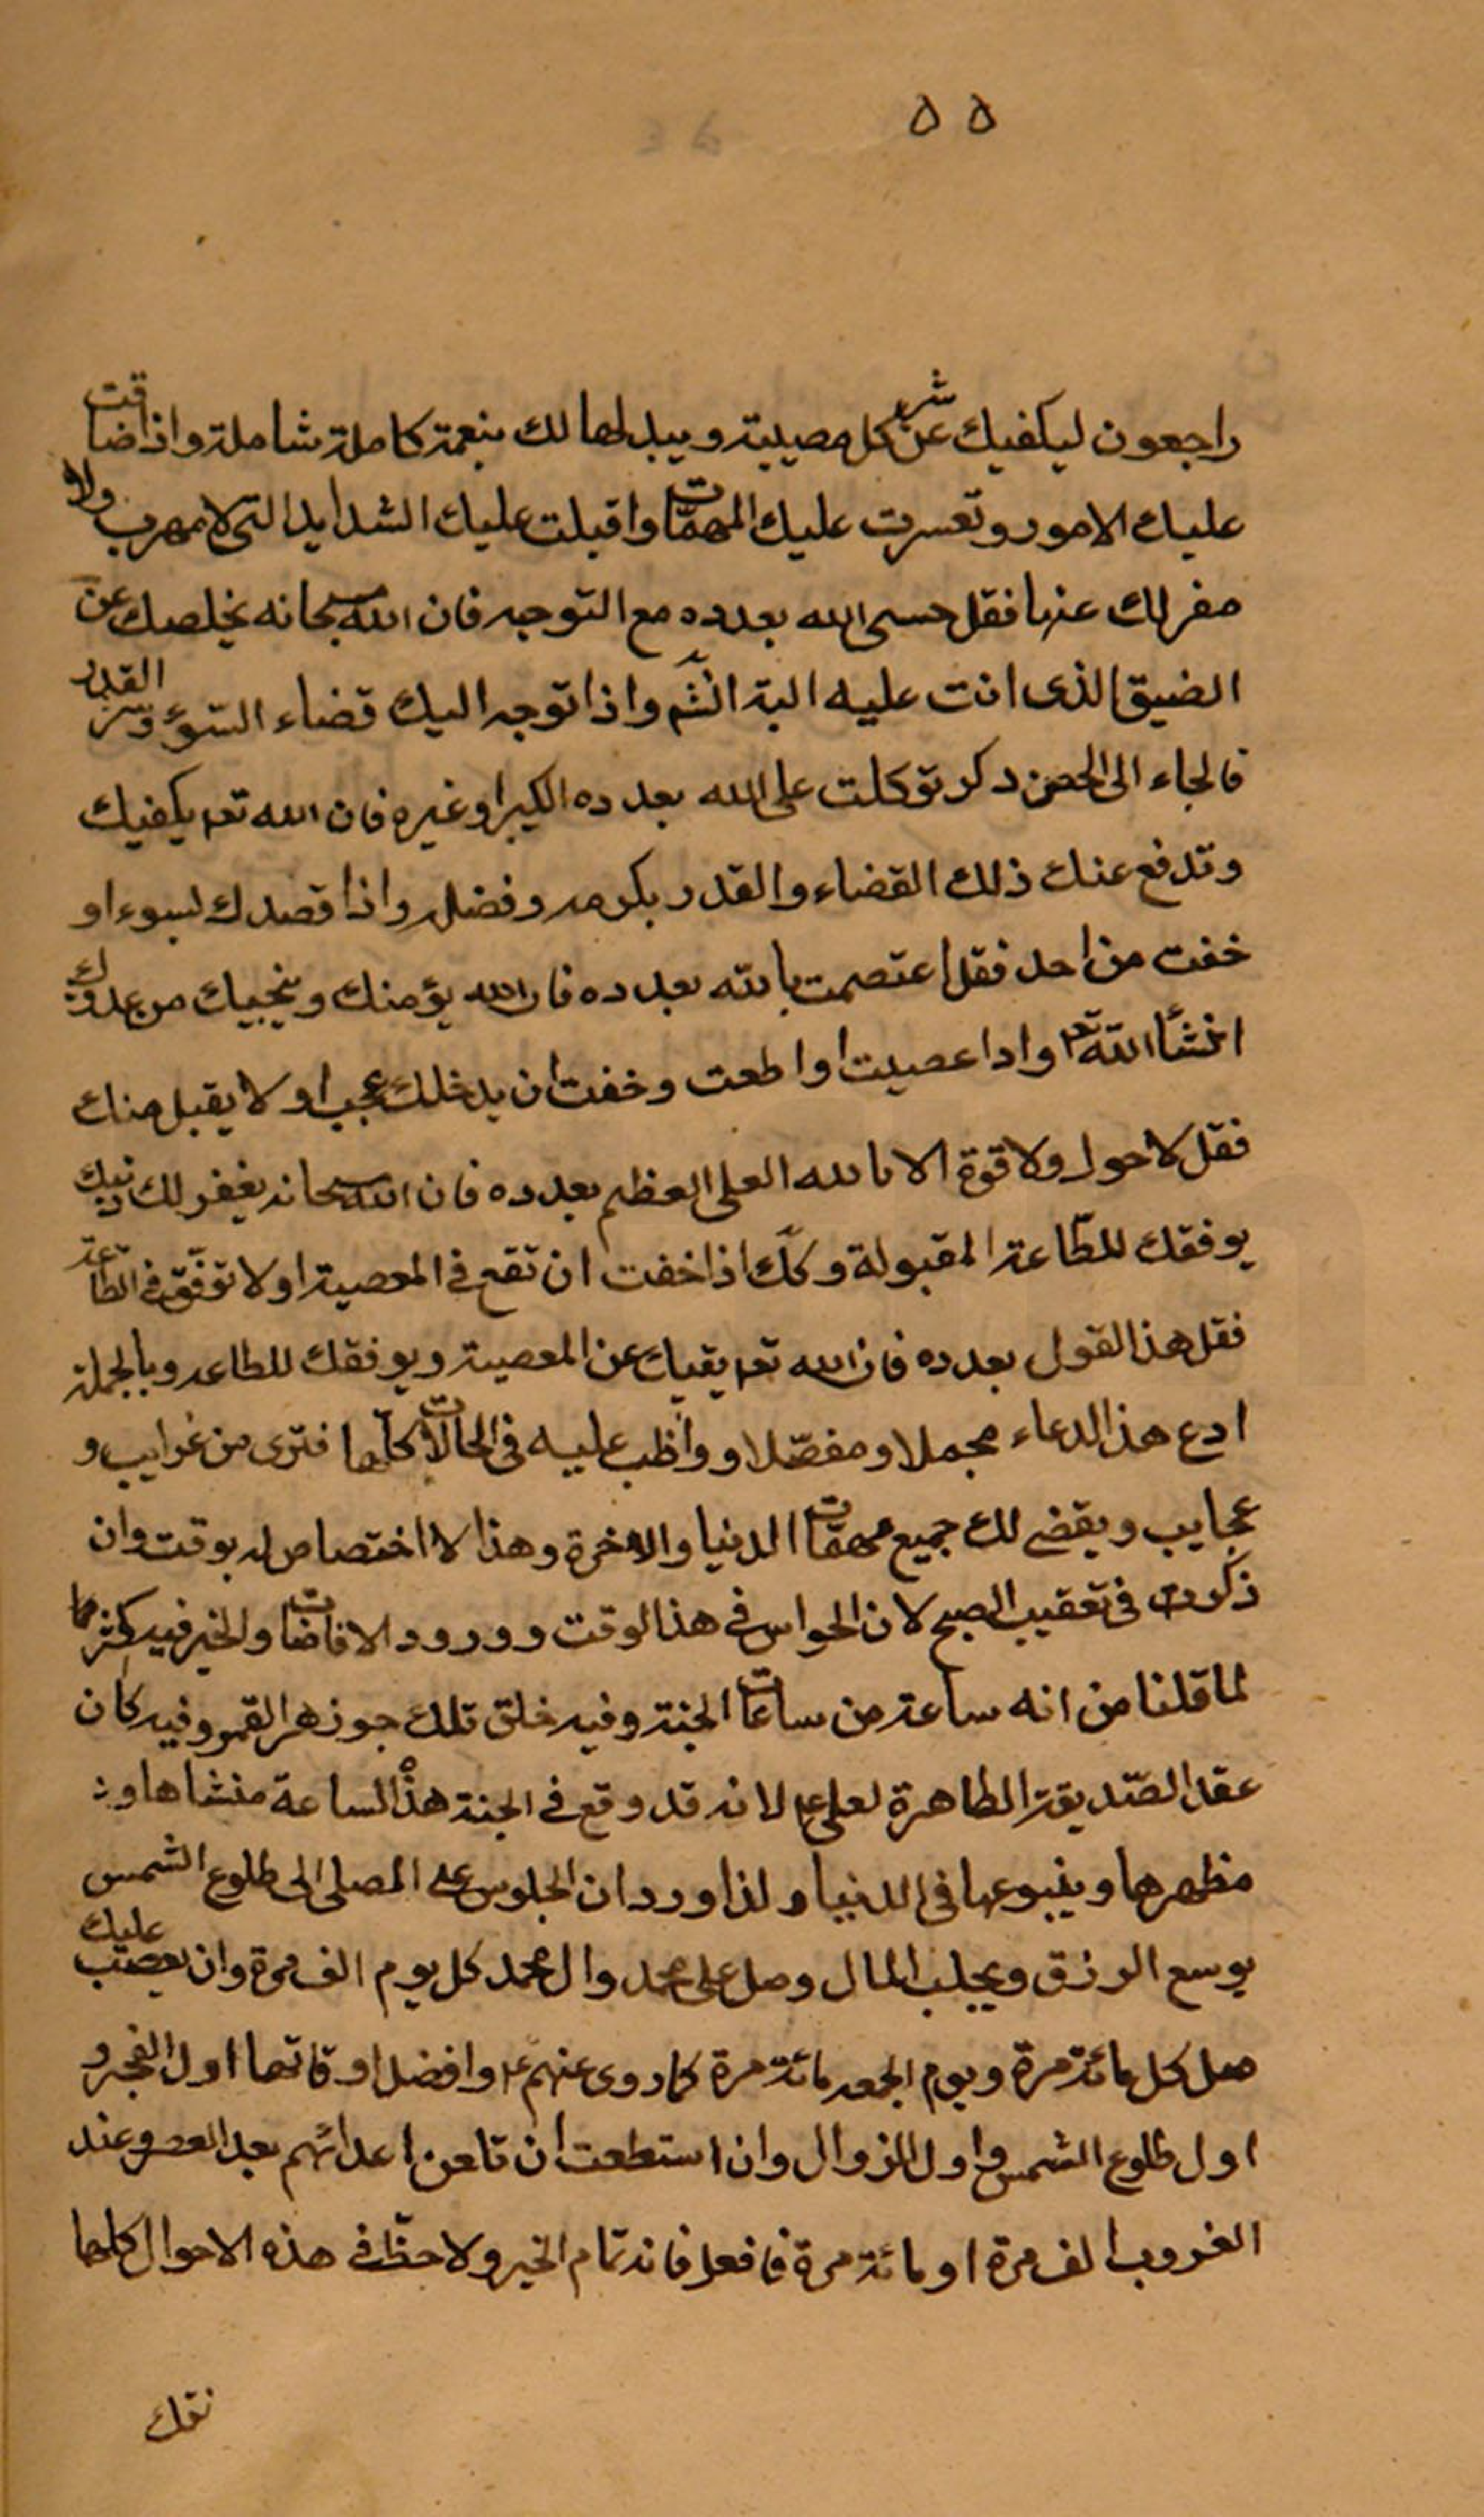 ٥٥
راجعون ليكفيك عن شر كل مصيبة ويبدلها لك بنعمة كاملة شاملة واذا ضاقت
عليك الامور وتعسرت عليك المهمّات واقبلت عليك الشدايد التى لا مهرب ولا
مفر لك عنها فقل حسبى الله بعدده مع التوجه فان الله سبحانه يخلصك عن
الضيق الذى انت عليه البتة انشَم واذا توجه اليك قضاء السّوء وشر القدر
فالجاء الى الحصن ذكر توكلت على الله بعدده الكبير او غيره فان الله تعـ يكفيك
وتدفع عنك ذلك القضاء والقدر بكرمه وفضله واذا قصدك لسوء او
خفت من احد فقل اعتصمت بالله بعدده فان الله يؤمنك وينجيك من عدوك
انشأ الله تعـ واذا عصيت او اطعت وخفت ان يدخلك عجب او لا يقبل منك
فقل لا حول ولا قوة الا بالله العلى العظيم بعدده فان الله سبحانه يغفر لك ذنبك
يوفقك للطّاعة المقبولة وكك اذا خفت ان تقع فى المعصية او لا توفّق فى الطاعة
فقل هذا القول بعدده فان الله تعـ يقيك عن المعصية ويوفقك للطاعه وبالجملة
ادع هذا الدعاء مجملا ومفصّلا وواظب عليه فى الحالات كلّها فترى من غرايب و
عجايب ويقضى لك جميع مهمّات الدنيا والاخرة وهذا لا اختصاص له بوقت وان
ذكرت فى تعقيب الصبح لان الحواس فى هذا الوقت وورود الافاضات والخير فيه كثر
لما قلنا من انه ساعة من ساعات الجنة وفيه خلق تلك جوزهر القمر وفيه كان
عقد الصّديقة الطاهرة لعلى ع لانه قد وقع فى الجنة هذه الساعة منشاها و
مظهرها وينبوعها فى الدنيا ولذا ورد ان الجلوس على المصلى الى طلوع الشمس
يوسع الرزق ويجلب المال وصل على محمد وال محمد كل يوم الف مرة وان يصعب عليك
صل كل مائة مرة ويوم الجمعه مائة مرة كما روى عنهم ع وافضل اوقاتها اول الفجر و
اول طلوع الشمس واول الزوال وان استطعت ان تلعن اعدائهم بعد العصر وعند
الغروب الف مرة او مائة مرة فافعل فانه تمام الخير ولاحظ فى هذه الاحوال كلها